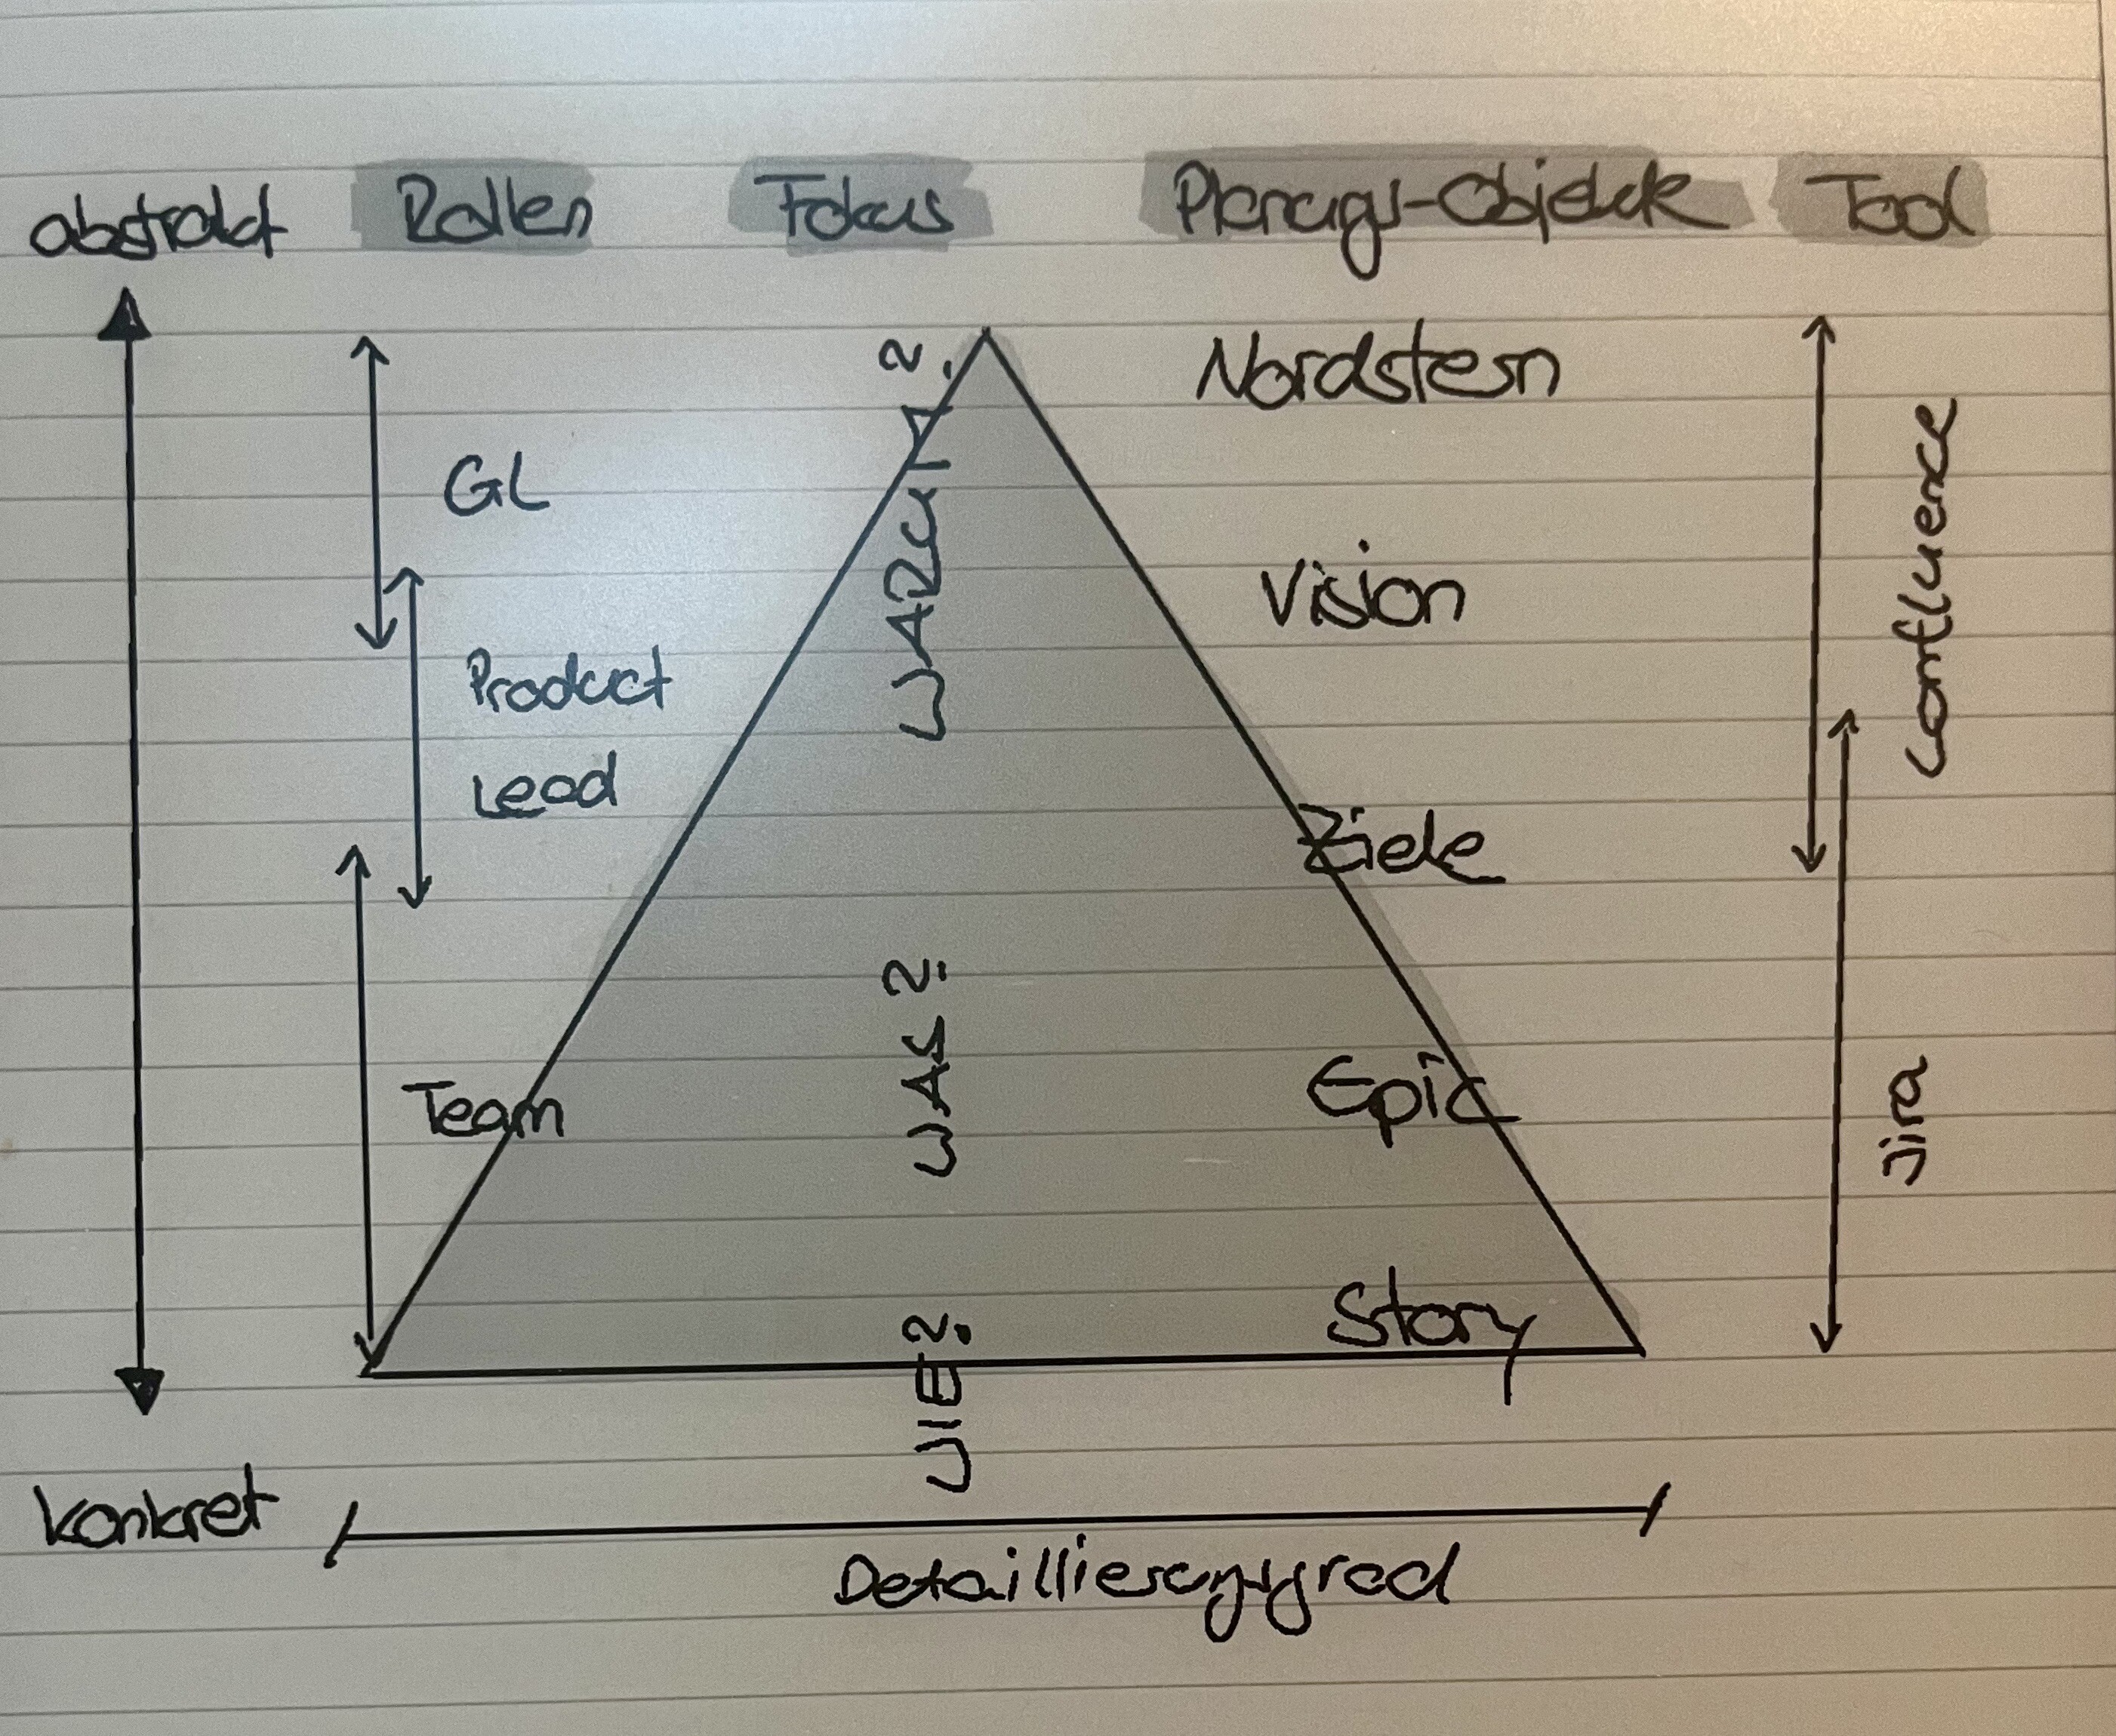 abstrakt Rollen Fokus Planungs-Objekte Tool
Nordstern
GL
WARUM?
Vision
Confluence
Product
Lead
Ziele
WAS?
Team
Epic
Jira
Story
WIE?
konkret
Detaillierungsgrad